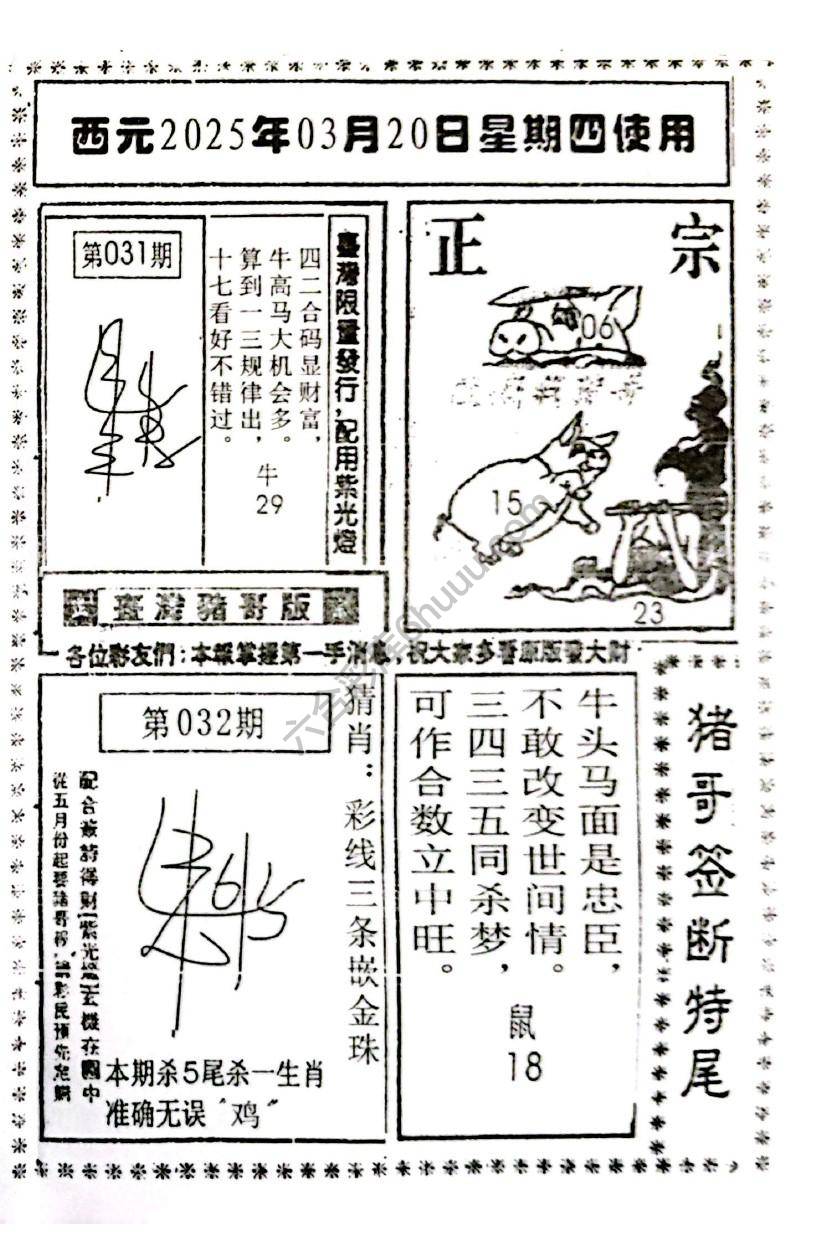 西元2025年03月20日星期四使用
第031期
臺灣限量發行，配用紫光燈
四二合码显财富，
牛高马大机会多。
算到一三规律出，
十七看好不错过。
牛
29
正宗
06
15
23
臺灣豬哥版
各位彩友們：本報掌握第一手消息，祝大家多看原版發大財
第032期
猜肖：彩线三条嵌金珠
從五月份起要豬哥報
本期杀5尾杀一生肖
准确无误“鸡”
牛头马面是忠臣，
不敢改变世间情。
三四三五同杀梦，
可作合数立中旺。
鼠
18
猪哥签断特尾
六合彩库6huuu.com